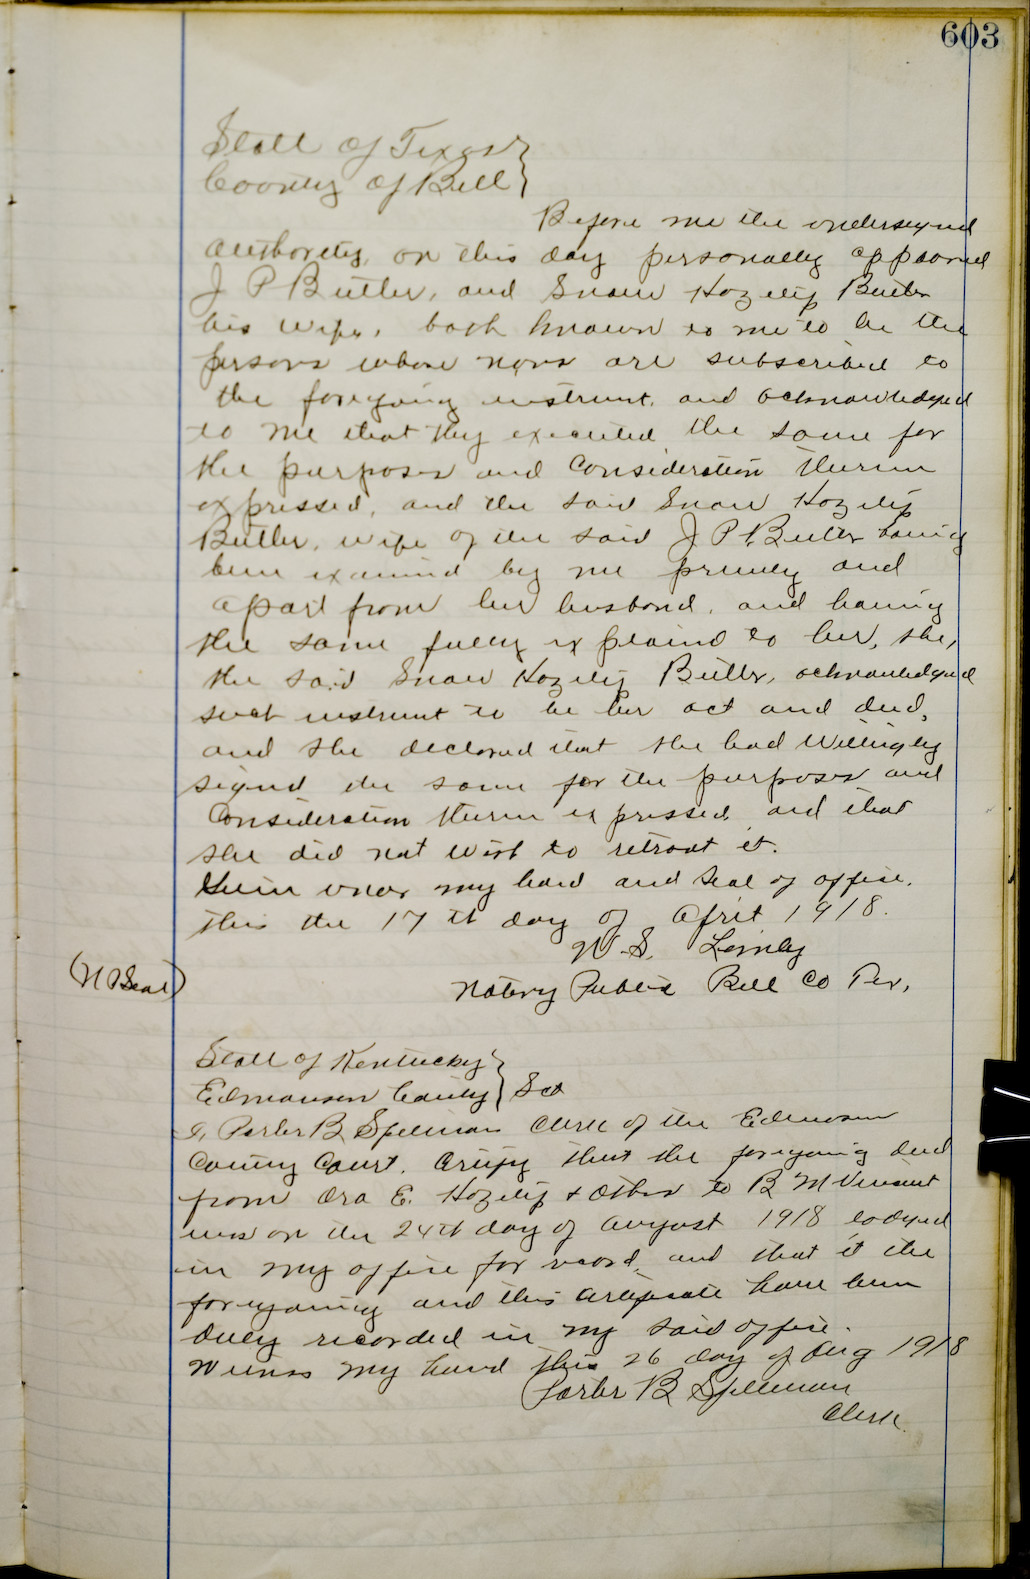 603
State of Texas }
County of Bell }
Before me the undersigned
authority, on this day personally appeared
J P Butler, and Snow Hazelip Butler
his wife, both known to me to be the
persons whose names are subscribed to
the foregoing instrument, and acknowledged
to me that they executed the same for
the purposes and Consideration therein
expressed, and the said Snow Hazelip
Butler, wife of the said J P. Butler having
been examined by me privily and
apart from her husband, and having
the same fully explained to her, she,
the said Snow Hazelip Butler, acknowledged
such instrument to be her act and deed,
and she declared that she had Willingly
signed the same for the purposes and
Consideration therein expressed, and that
she did not wish to retract it.
Given under my hand and seal of office.
this the 17th day of April 1918.
W. S.
(N P Seal)
Notary Public Bell Co Tex,
State of Kentucky }
Edmonson County } Sct
I, Porter B Spillman Clerk of the Edmonson
County Court, Certify that the foregoing deed
from Ora E. Hazelip & others to B M Vincent
was on the 24th day of August 1918 lodged
in my office for record, and that it the
foregoing and this Certificate have been
duly recorded in my said office.
Witness my hand this 26 day of Aug 1918
Porter B Spillman
Clerk.